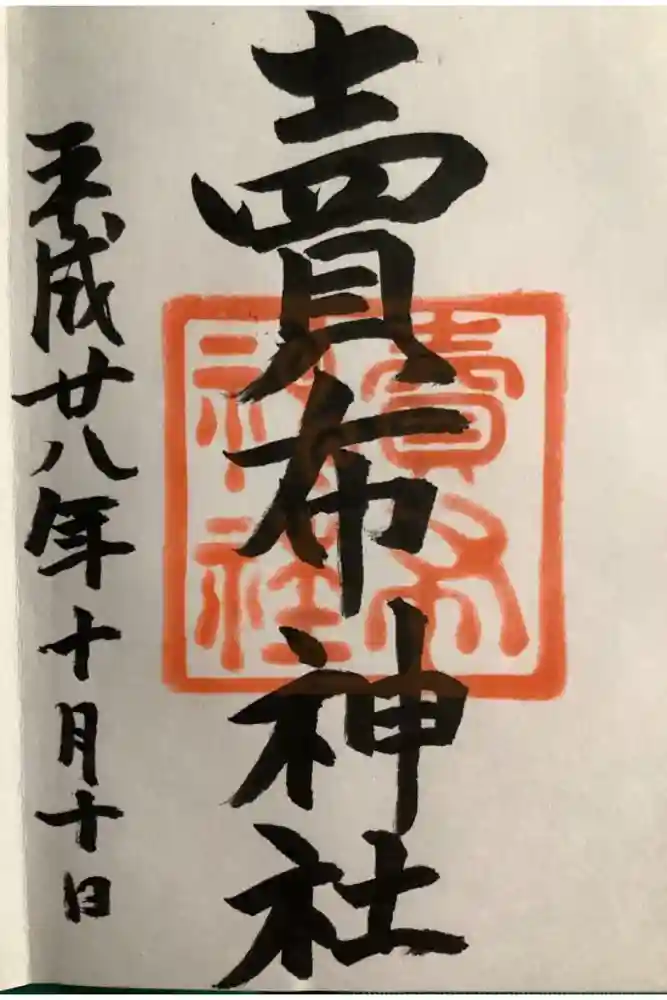 賣布神社
平成廿八年十月十日
賣布
神社